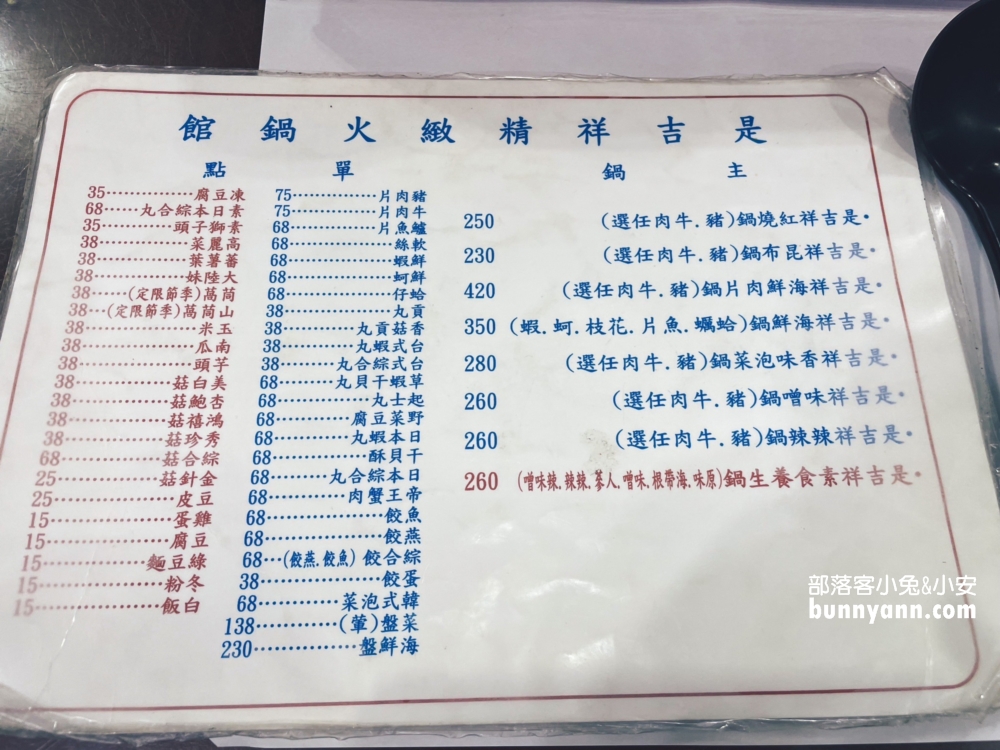 是吉祥精緻火鍋館
主鍋
•是吉祥紅燒鍋(豬.牛肉任選) 250
•是吉祥昆布鍋(豬.牛肉任選) 230
•是吉祥海鮮肉片鍋(豬.牛肉任選) 420
•是吉祥海鮮鍋(蛤蠣.魚片.花枝.蚵.蝦) 350
•是吉祥香味泡菜鍋(豬.牛肉任選) 280
•是吉祥味噌鍋(豬.牛肉任選) 260
•是吉祥辣辣鍋(豬.牛肉任選) 260
•是吉祥素食養生鍋(原味.海帶根.味噌.人蔘.辣辣.辣味噌) 260
單點
豬肉片……………75
牛肉片……………75
鱸魚片……………68
軟絲……………68
鮮蝦……………68
鮮蚵……………68
蛤仔……………68
貢丸……………38
香菇貢丸……………38
台式蝦丸……………38
台式綜合丸……………38
草蝦干貝丸……………68
起士丸……………68
野菜豆腐……………68
日本蝦丸……………68
干貝酥……………68
日本綜合丸……………68
帝王蟹肉……………68
魚餃……………68
燕餃……………68
綜合餃(魚餃.燕餃)…68
蛋餃……………38
韓式泡菜……………68
菜盤(葷)……………138
海鮮盤……………230
凍豆腐……………35
素日本綜合丸……68
素獅子頭……………35
高麗菜……………38
蕃薯葉……………38
大陸妹……………38
茼萵(季節限定)……38
山茼萵(季節限定)…38
玉米……………38
南瓜……………38
芋頭……………38
美白菇……………38
杏鮑菇……………38
鴻禧菇……………38
秀珍菇……………38
綜合菇……………68
金針菇……………25
豆皮……………25
雞蛋……………15
豆腐……………15
綠豆麵……………15
冬粉……………15
白飯……………15
部落客小兔&小安
bunnyann.com